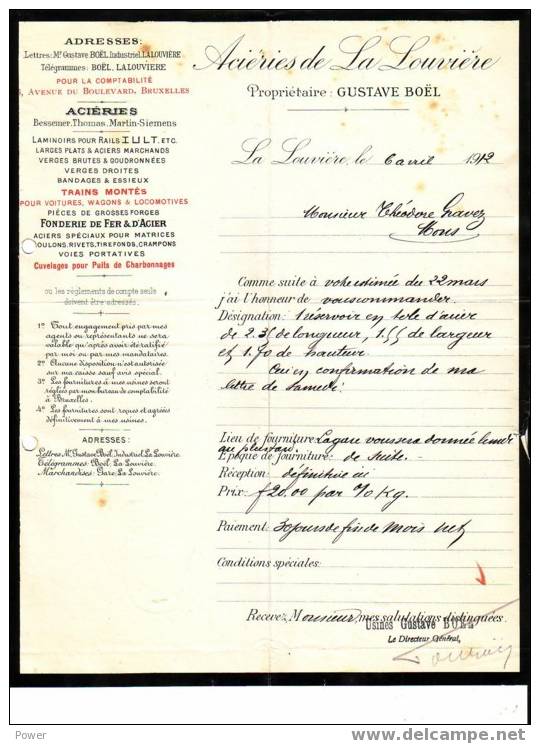 ADRESSES:
Lettres: Mr Gustave BOËL, Industriel, LA LOUVIÈRE
Télégrammes: BOËL, LA LOUVIERE
POUR LA COMPTABILITÉ
AVENUE DU BOULEVARD, BRUXELLES
ACIÉRIES
Bessemer, Thomas, Martin-Siemens
LAMINOIRS POUR RAILS I U L T, ETC.
LARGES PLATS & ACIERS MARCHANDS
VERGES BRUTES & GOUDRONNÉES
VERGES DROITES
BANDAGES & ESSIEUX
TRAINS MONTÉS
POUR VOITURES, WAGONS & LOCOMOTIVES
PIÈCES DE GROSSES FORGES
FONDERIE DE FER & D'ACIER
ACIERS SPÉCIAUX POUR MATRICES
BOULONS, RIVETS, TIREFONDS, CRAMPONS
VOIES PORTATIVES
Cuvelages pour Puits de Charbonnages
ou les règlements de compte seuls
doivent être adressés.
1º Tout engagement pris par mes
agents ou représentants ne sera
valable qu'après avoir été ratifié
par moi ou par mes mandataires.
2º Aucune disposition n'est autorisée
sur ma caisse sauf avis spécial.
3º Les fournitures à mes usines seront
réglées par mon bureau de comptabilité
à Bruxelles.
4º Les fournitures sont reçues et agréées
définitivement à mes usines.
ADRESSES:
Lettres: Mr. Gustave Boël, Industriel, La Louvière.
Télégrammes: Boël, La Louvière.
Marchandises: Gare La Louvière.
Aciéries de La Louvière
Propriétaire: GUSTAVE BOËL
La Louvière, le 6 avril 1912
Monsieur Théodore Gravez
Mons
Comme suite à votre estimée du 22 mars
j'ai l'honneur de vous commander.
Désignation: 1 réservoir en tole d'acier
de 2.35 de longueur, 1.55 de largeur
et 1.70 de hauteur
Ceci en confirmation de ma
lettre de samedi
Lieu de fourniture: vous sera donnée lundi
au plus tard.
Epoque de fourniture: de suite.
Réception: définitive ici
Prix: f 20.00 par % Kg.
Paiement: 30 jours de fin de mois net
Conditions spéciales:
Recevez, Monsieur, mes salutations distinguées.
Usines Gustave BOËL
Le Directeur Général,
Power
delcampe.net